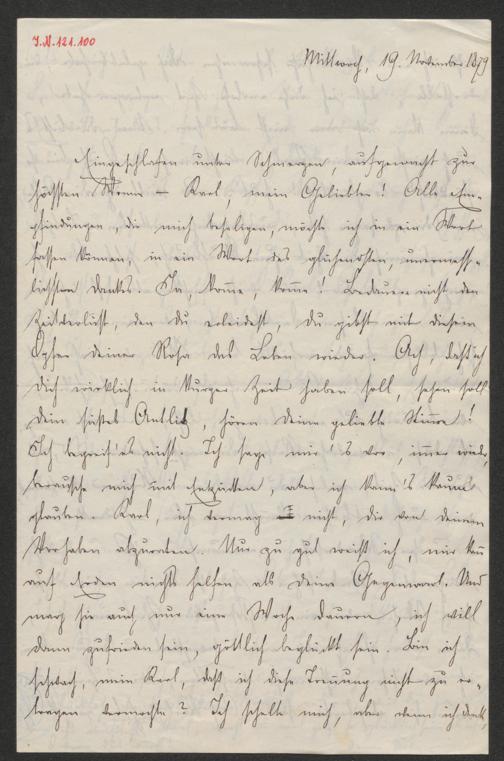 J.N. 121.100
Mittwoch, 19. November 1879
Eingeschlafen unter Schmerzen, aufgewacht zur
höchsten Wonne – Karl, mein Geliebter! Alle Em-
pfindungen, die mich beseligen, möchte ich in ein Wort
fassen können, in ein Wort des glühendsten, unermess-
lichsten Danks. Ja, komme, komme! Bedauere nicht den
Zeitverlust, den Du erleidest, Du gibst mit diesem
Opfer deiner Rosa das Leben wieder. Ach, daß ich
Dich wirklich in kurzer Zeit haben soll, sehen soll
Dein süßes Antlitz, hören Deine geliebte Stimme!
Ich begreif' es nicht. Ich sage mir's vor, immer wieder,
berausche mich mit Entzücken, aber ich kann's kaum
glauben. Karl, ich vermag nicht, dir von Deinem
Vorhaben abzuraten. Nur zu gut weiß ich, mir kann
auf Erden nichts helfen als Deine Gegenwart. Und
mag sie auch nur eine Woche dauern, ich will
dann zufrieden sein, göttlich beglückt sein. Bin ich
schwach, mein Karl, daß ich diese Trennung nicht zu er-
tragen vermochte? Ich schelte mich, aber wenn ich denk,